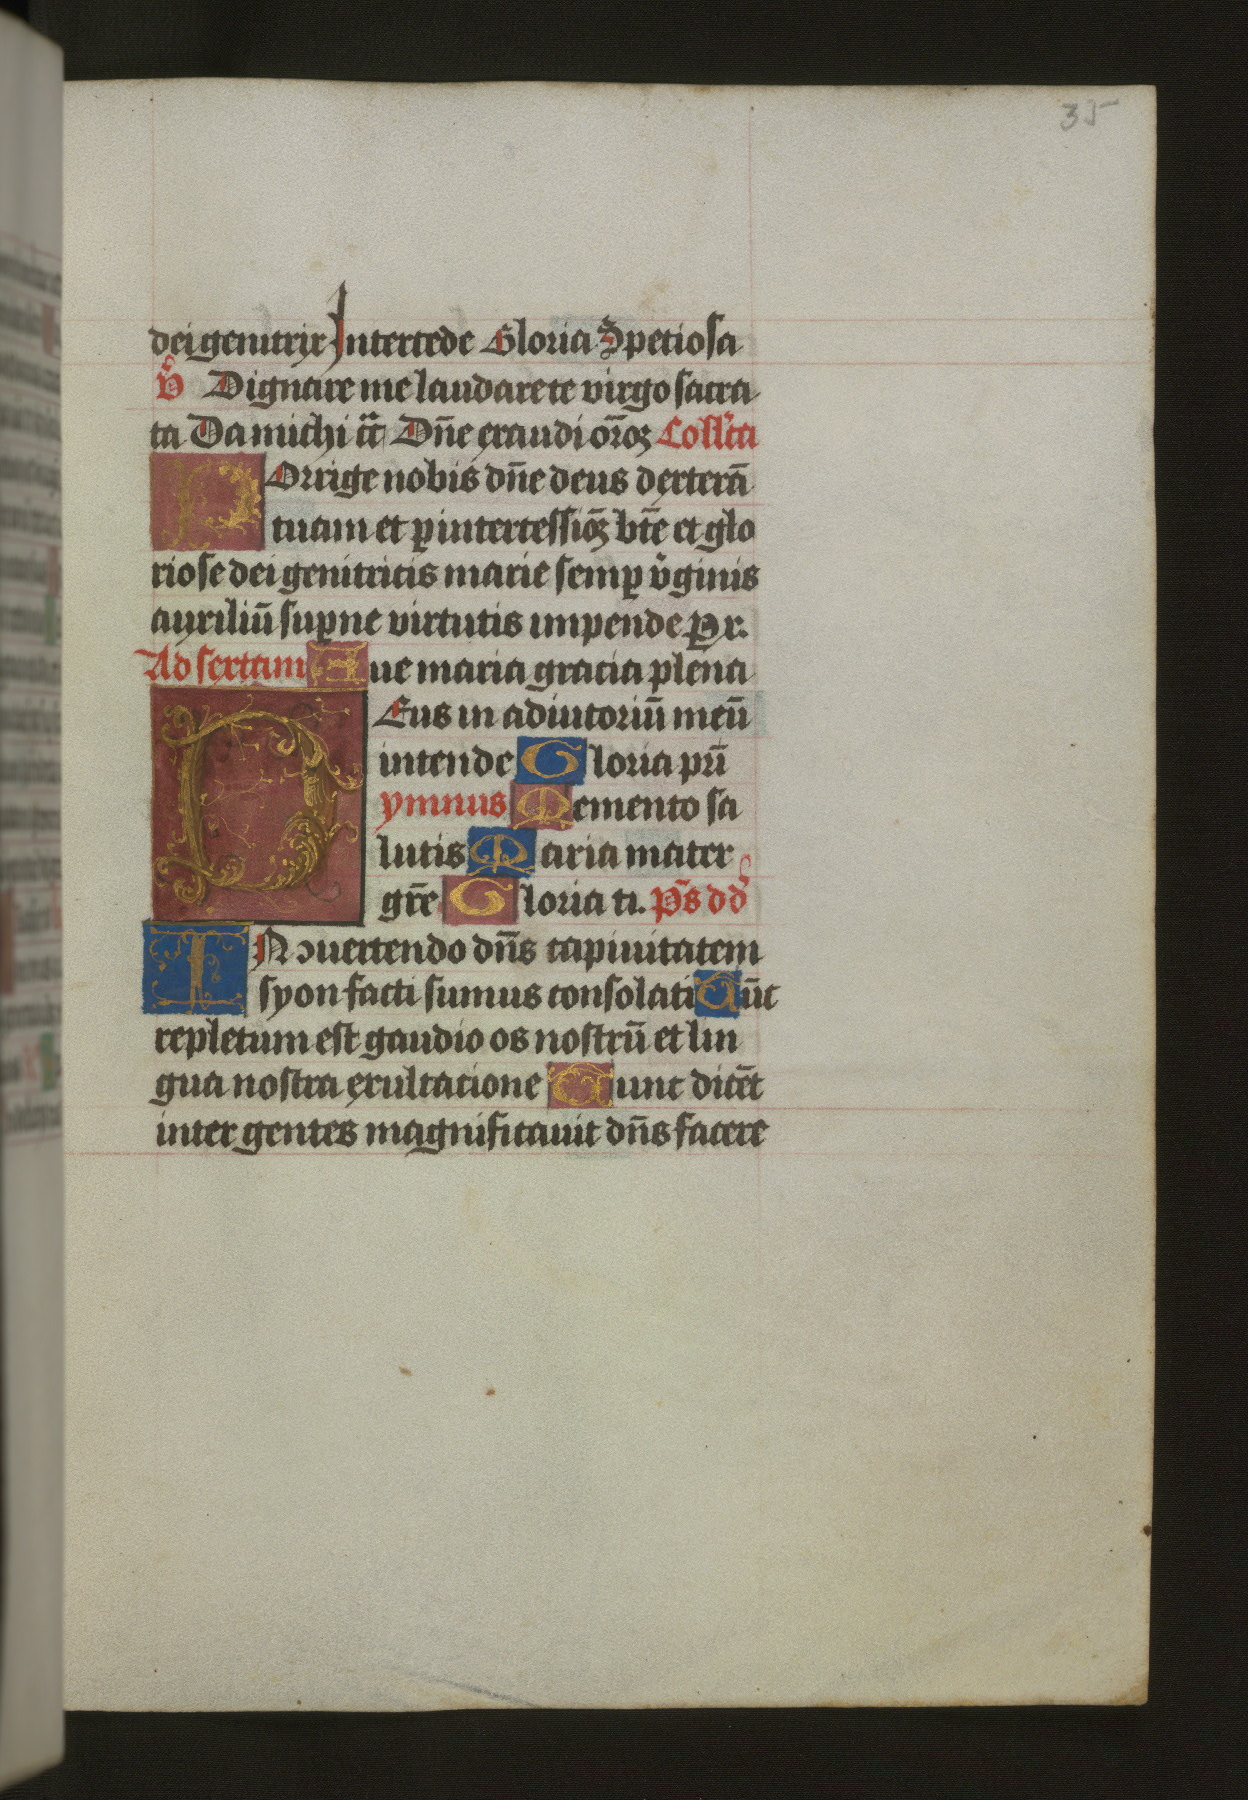 35
dei genitrix Intercede Gloria Speciosa
v̊ Dignare me laudare te virgo sacra
ta Da michi cͣ Dn̄e exaudi or̄oꝫ Coll̄cta
POrrige nobis dn̄e deus dexterā
tuam et ꝑ intercessiōꝫ bt̄e et glo
riose dei genitricis marie semꝑ v̄ginis
auxiliū suꝑne virtutis impende Ꝑ x.
Ad sextam Aue maria gracia plena
DEus in adiutoriū meū
intende Gloria pr̄i
ymnus Memento sa
lutis Maria mater
gr̄e Gloria ti. Ps̄ dd̊
IN ↄuertendo dn̄s captiuitatem
syon facti sumus consolati Tūc
repletum est gaudio os nostrū et lin
gua nostra exultacione Tunc dicēt
inter gentes magnificauit dn̄s facere